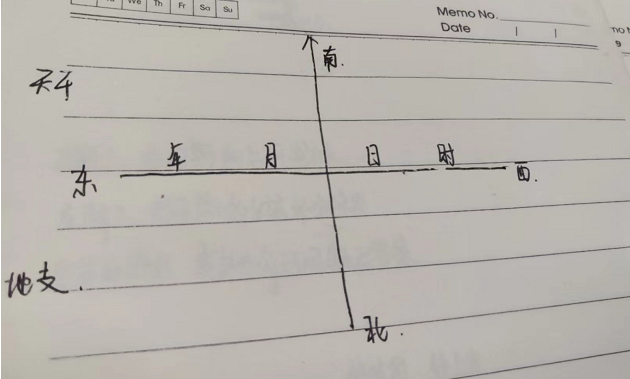 We Th Fr Sa Su
Memo No.
Date
南.
天干
年 月 日 时
东 西.
地支.
北.